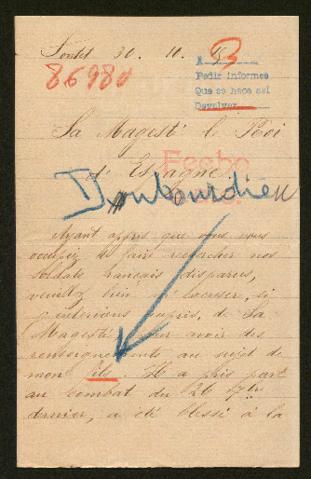 30. 11. 15
86980
Pedir informes
Que se hace así
Devolver
Sa Magesté le Roi
d'Espagne
Fecho
Doubourdieu
Ayant appris que vous vous
occupez de faire rechercher nos
soldats français disparus,
veuillez bien m'excuser, si
j'interviens auprès, de Sa
Magesté pour avoir des
renseignements au sujet de
mon fils. Il a pris part
au combat du 26 7bre
dernier, a été blessé à la